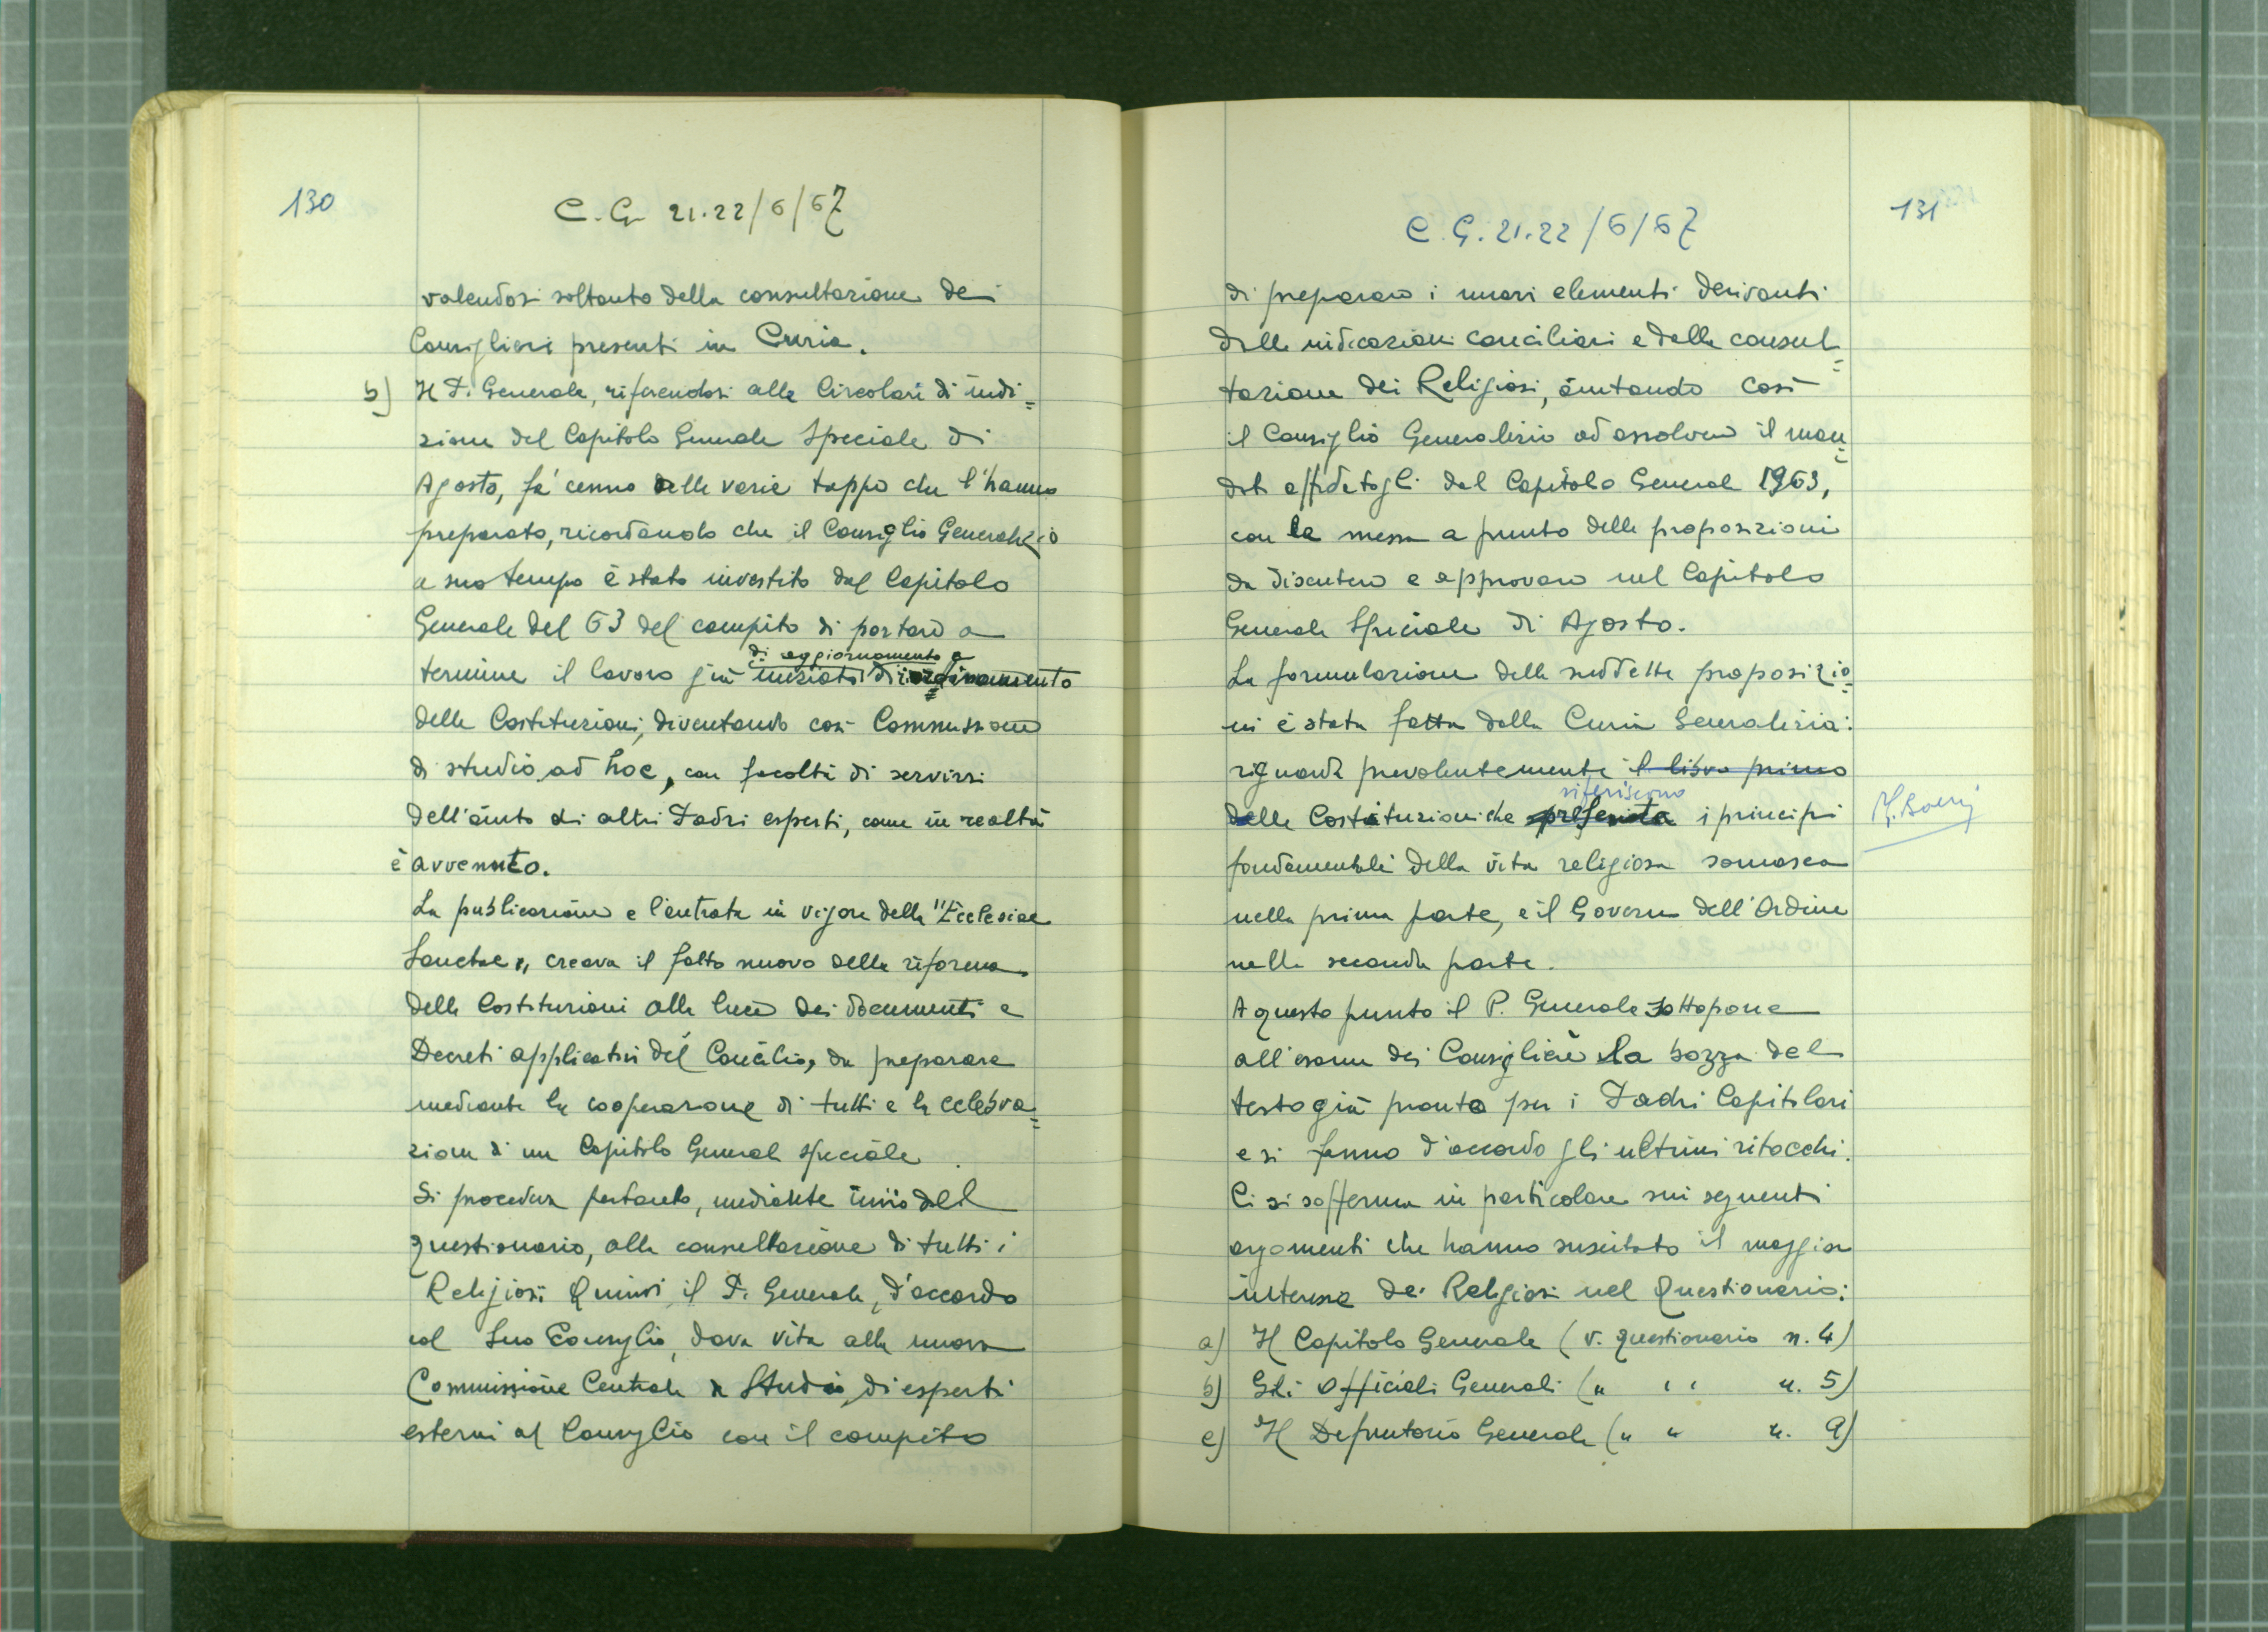 130
C. G. 21.22/6/67
valendosi soltanto della consultazione dei
Consiglieri presenti in Curia.
b) Il P. Generale, riferendosi alle Circolari di indi=
zione del Capitolo Generale Speciale di
Agosto, fa' cenno delle varie tappe che l'hanno
preparato, ricordando che il Consiglio Generalizio
a suo tempo è stato investito dal Capitolo
Generale del 63 del compito di portare a
di aggiornamento e
termine il lavoro già iniziato di ordinamento
delle Costituzioni, diventando così Commissione
di studio ad hoc, con facoltà di servirsi
dell'aiuto di altri Padri esperti, come in realtà
è avvenuto.
La pubblicazione e l'entrata in vigore della "Ecclesiae
Sanctae", creava il fatto nuovo della riforma
delle Costituzioni alla luce dei documenti e
Decreti applicativi del Concilio, da preparare
mediante la cooperazione di tutti e la celebra=
zione di un Capitolo Generale speciale.
Si procedeva pertanto, mediante invio del
questionario, alla consultazione di tutti i
Religiosi. Quindi il P. Generale, d'accordo
col Suo Consiglio, dava vita alla nuova
Commissione Centrale di Studio, di esperti
esterni al Consiglio con il compito
131
C. G. 21.22/6/67
di preparare i nuovi elementi derivanti
dalle indicazioni conciliari e dalla consul=
tazione dei Religiosi, aiutando così
il Consiglio Generalizio ad assolvere il man=
dato affidatogli dal Capitolo Generale 1963,
con la messa a punto delle proposizioni
da discutere e approvare nel Capitolo
Generale Speciale di Agosto.
La formulazione delle suddette proposizio=
ni è stata fatta dalla Curia Generalizia:
riguarda prevalentemente il libro primo
riferiscono
delle Costituzioni che presenta i principi
fondamentali della vita religiosa somasca
nella prima parte, e il Governo dell'Ordine
nella seconda parte.
A questo punto il P. Generale sottopone
all'esame dei Consiglieri la bozza del
testo già pronto per i Padri Capitolari
e si fanno d'accordo gli ultimi ritocchi.
Ci si sofferma in particolare sui seguenti
argomenti che hanno suscitato il maggior
interesse dei Religiosi nel Questionario:
a) Il Capitolo Generale (v. questionario n. 4)
b) Gli Officiali Generali (" " n. 5)
c) Il Definitorio Generale (" " n. 9)